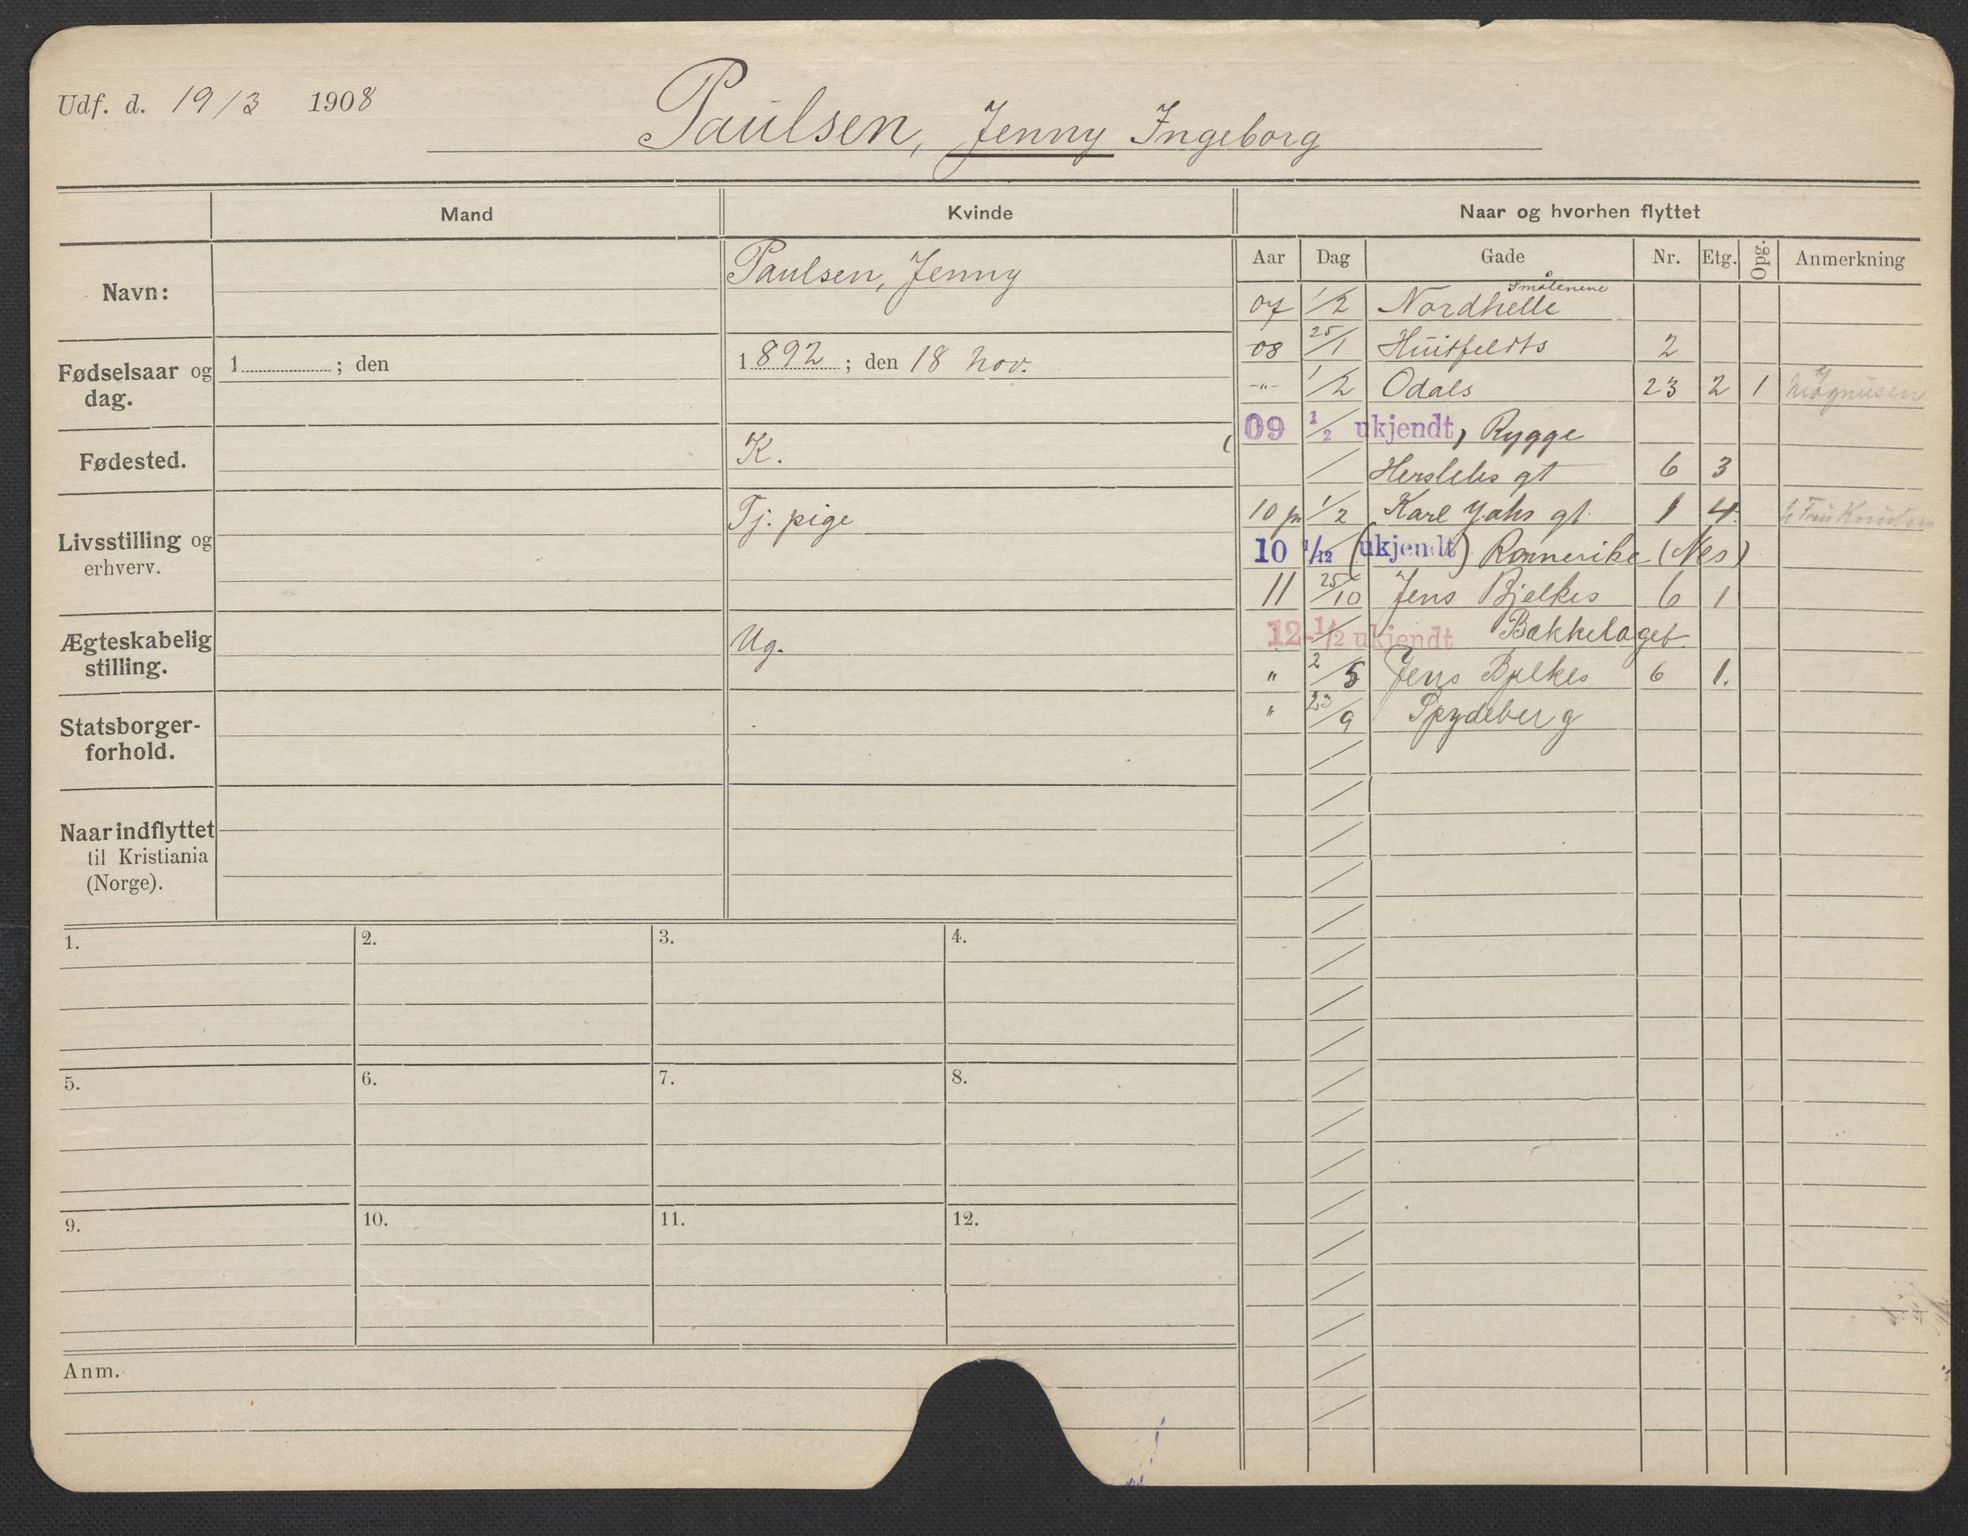 Udf. d. 19/3 1908
Paulsen, Jenny Ingeborg
Mand Kvinde Naar og hvorhen flyttet
Aar Dag Gade Nr. Etg. Opg. Anmerkning
Navn: Paulsen, Jenny
Fødselsaar og dag. 1 ; den 1892 ; den 18 Nov.
Fødested. K.
Livsstilling og erhverv. Tj. pige
Ægteskabelig stilling. Ug.
Statsborger-
forhold.
Naar indflyttet
til Kristiania
(Norge).
07 1/2 Nordhelle Smålenene
08 25/1 Huitfeldts 2
-"- 1/2 Odals 23 2 1 Magnusen
09 1/2 ukjendt, Rygge
Herslebs gt 6 3
10 1/2 Karl Johs gt. 1 4. Fru Knudsen
10 1/12 (ukjendt) Romerike (Nes)
11 25/10 Jens Bjelkes 6 1
12 1/2 ukjendt Bækkelaget
" 2/5 Jens Bjelkes 6 1.
" 23/9 Spydeberg
1. 2. 3. 4.
5. 6. 7. 8.
9. 10. 11. 12.
Anm.